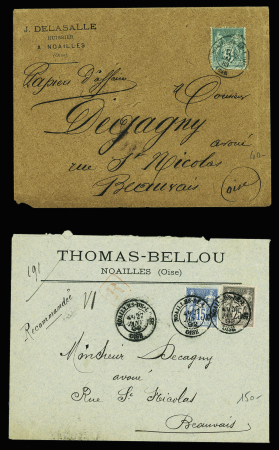 J. DELASALLE
HUISSIER
A NOAILLES
(Oise)
Papiers d'affaires
Monsieur
Decagny
avoué
rue St Nicolas
Beauvais
(Oise)
150-
THOMAS-BELLOU
NOAILLES (Oise)
191
Recommandée
VI
15
Monsieur Decagny
avoué
Rue St Nicolas
150-
Beauvais